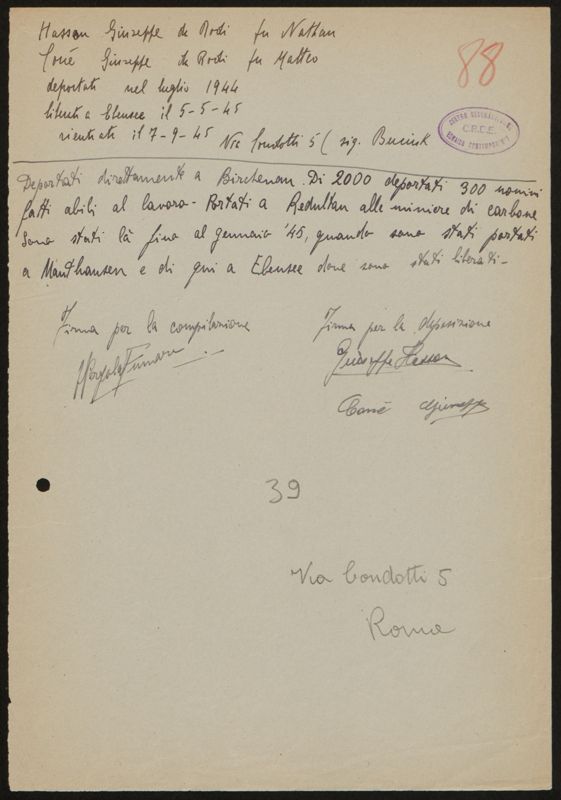 Hassan Giuseppe de Rodi fu Nathan
88
Coné Giuseppe de Rodi fu Matteo
deportati nel luglio 1944
liberati a Ebensee il 5-5-45
rientrati il 7-9-45 Via Condotti 5 ( sig.
C.R.D.E.
Deportati direttamente a Birchenau. Di 2000 deportati 300 uomini
fatti abili al lavoro - Portati a Redultau alle miniere di carbone
Sono stati là fino al gennaio '45, quando sono stati portati
a Mauthausen e di qui a Ebensee dove sono stati liberati -
Firma per la compilazione
Firma per la deposizione
Giuseppe Hassan
Coné Giuseppe
39
Via Condotti 5
Roma